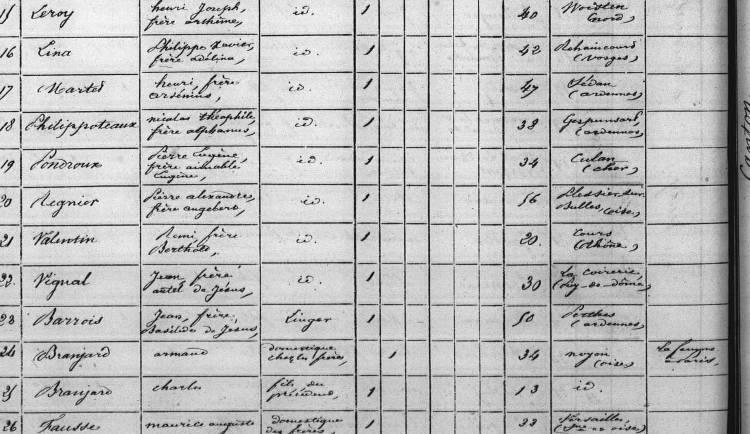 15 Leroy henri Joseph, frère arthème, id. 1 40 (nord)
16 Lina Philippe Xavier, frère adelina, id. 1 42 Rehaincourt (Vosges)
17 Martei henri, frère arsénius, id. 1 47 Sédan (ardennes)
18 Philippoteaux nicolas théophile, frère alphanus, id. 1 38 Gespunsard, (ardennes)
19 Pondroux Pierre Eugène, frère aimable Eugène, id. 1 34 Culan (cher)
20 Regnier Pierre alexandre, frère angebert, id. 1 56 Plessier sur Bulles, (oise)
21 Valentin Remi, frère Berthold, id. 1 20. Cours (Rhône)
22. Vignal Jean, frère antel de Jésus, id. 1 30 La (Puy-de-dôme)
23 Barrois Jean, frère Basilide de Jesus, linger 1 50 Perthes (ardennes)
24 Branjard armand domestique chez les frères, 1 34 noyon (oise) à Paris.
25 Branjard charles fils du précédend, 1 13 id.
26 Fausse maurice auguste domestique des frères, 1 33 Versailles, (Sne et oise)